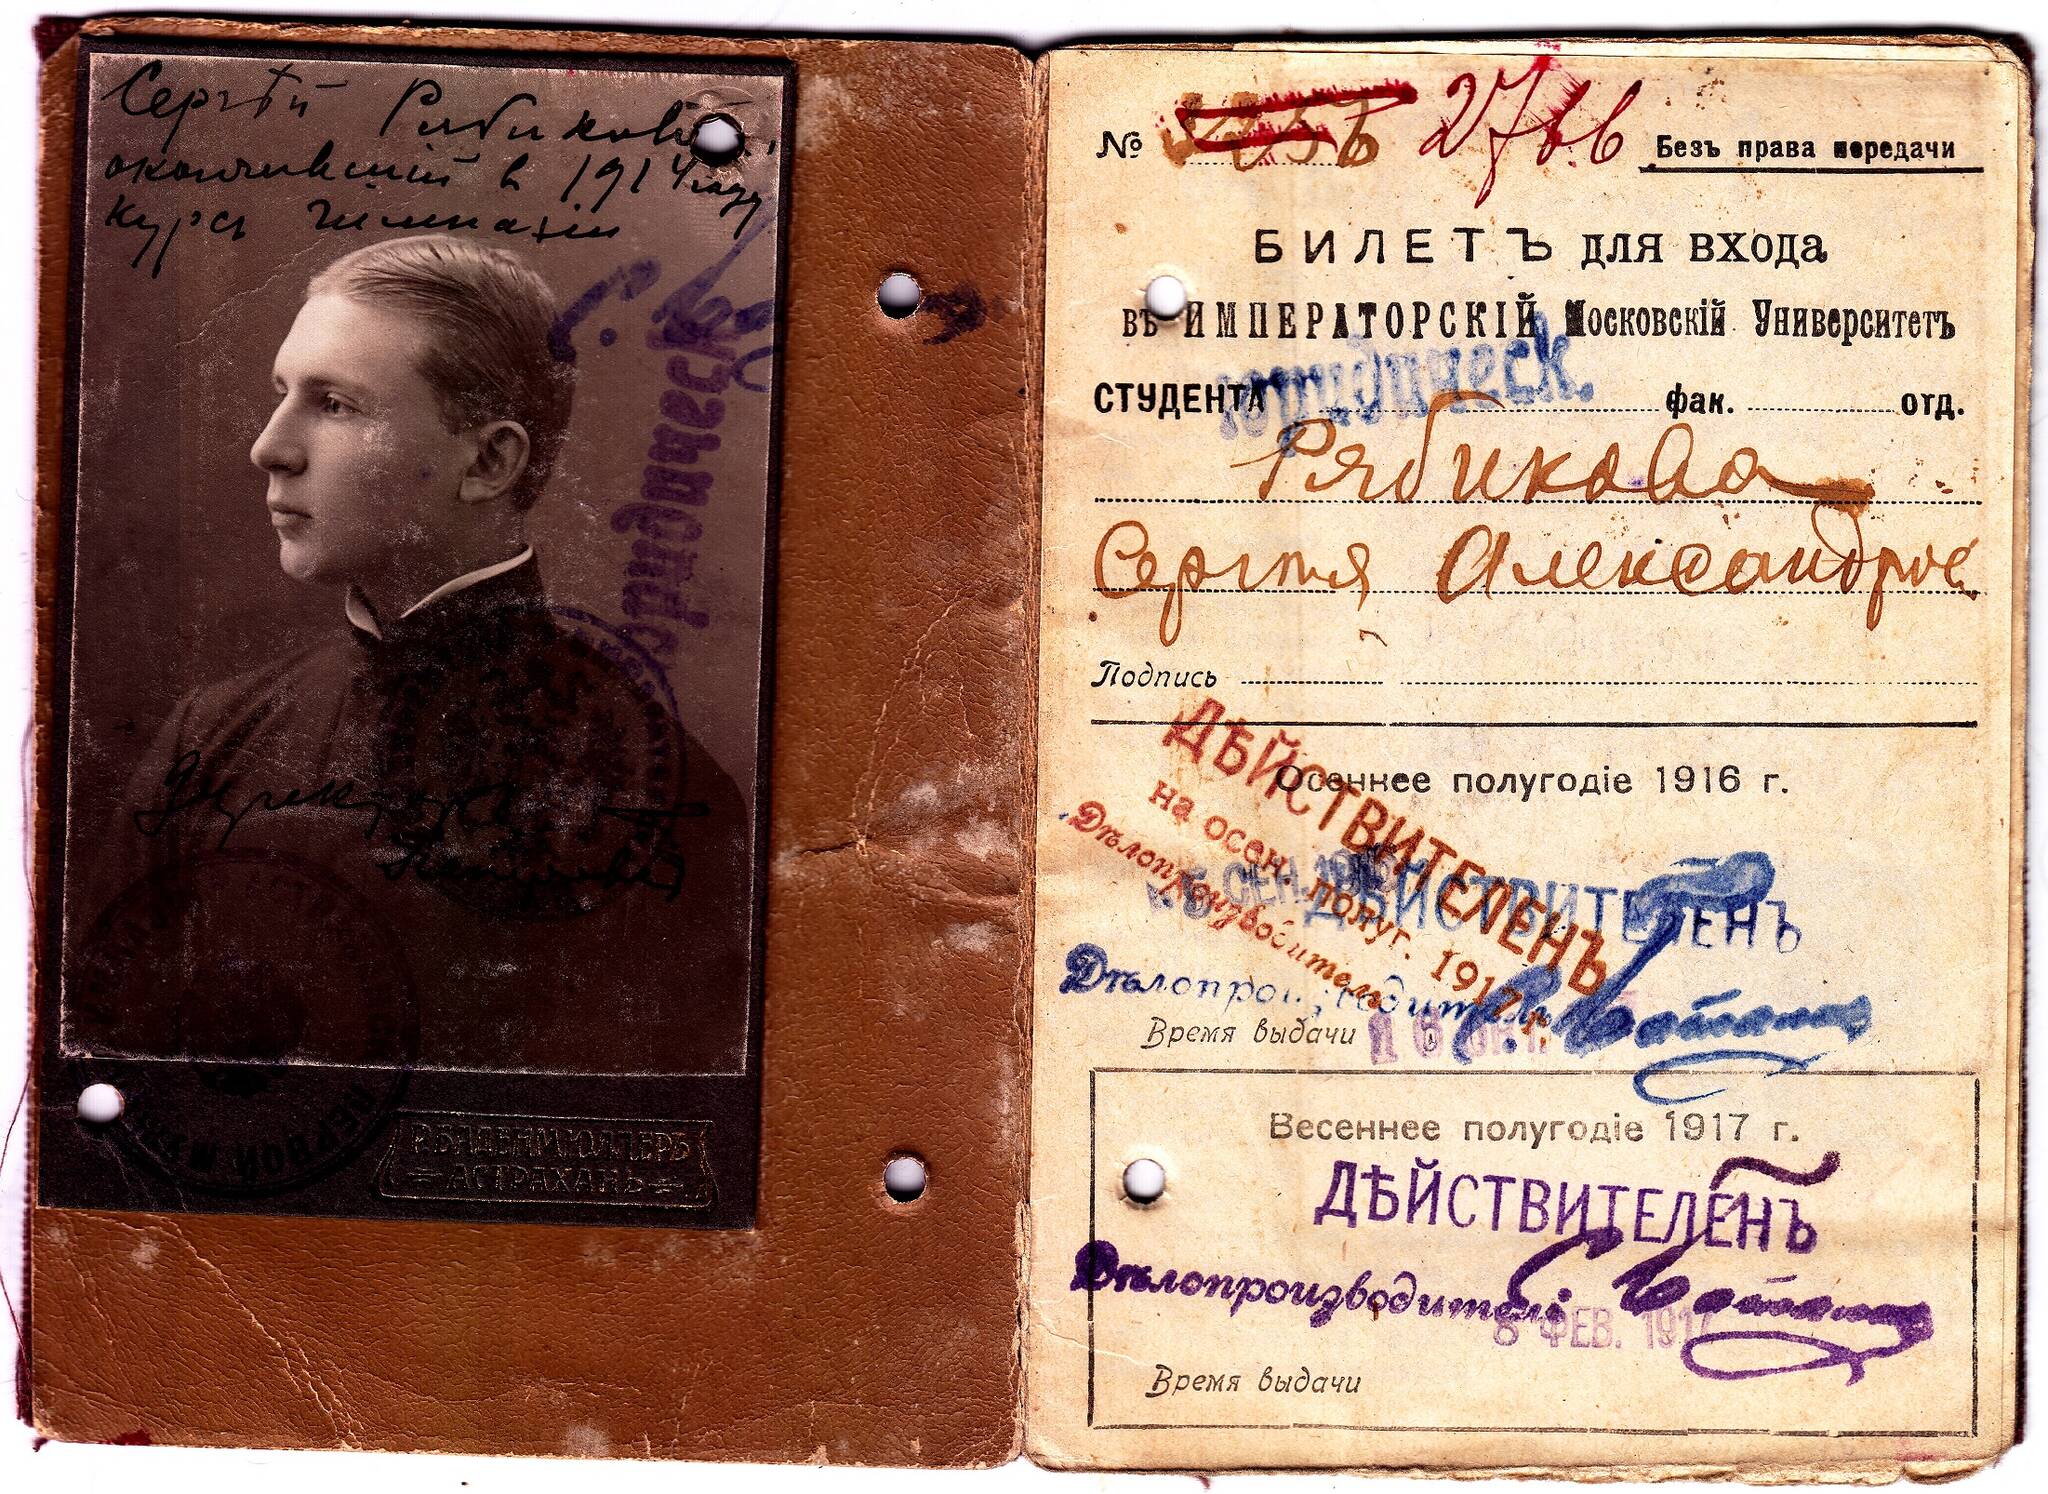 Сергѣй Рябиковъ,
окончившій въ 1914 году
курсъ гимназіи
Директоръ
АСТРАХАНЬ
№ Безъ права передачи
БИЛЕТЪ для входа
въ ИМПЕРАТОРСКІЙ Московскій Университетъ
СТУДЕНТА юридическ. фак. отд.
Рябикова
Сергѣя Александров.
Подпись
Осеннее полугодіе 1916 г.
ДѢЙСТВИТЕЛЕНЪ
на осен. полуг. 1917 г.
Дѣлопроизводитель
ДѢЙСТВИТЕЛЕНЪ
Дѣлопроизводитель
Время выдачи 16
Весеннее полугодіе 1917 г.
ДѢЙСТВИТЕЛЕНЪ
Дѣлопроизводитель
8 ФЕВ. 1917
Время выдачи